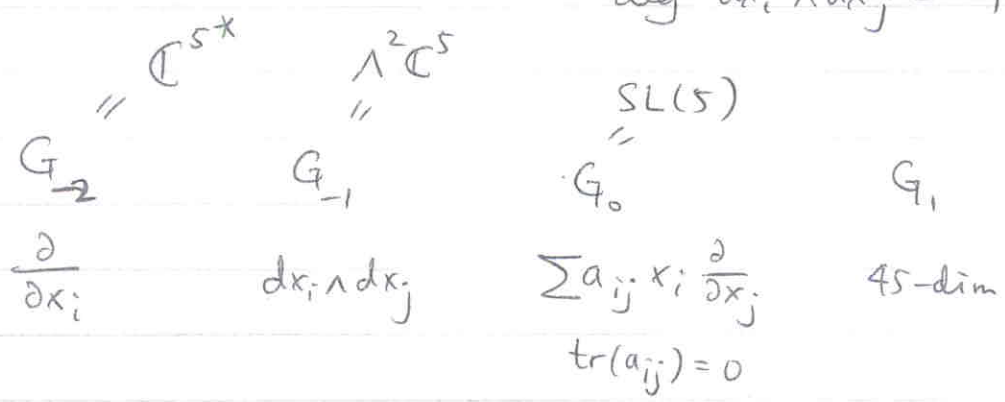 ℂ⁵* Λ²ℂ⁵
SL(5)
G₋₂ G₋₁ G₀ G₁
∂/∂xᵢ dxᵢ∧dxⱼ Σaᵢⱼ xᵢ ∂/∂xⱼ 45-dim
tr(aᵢⱼ)=0